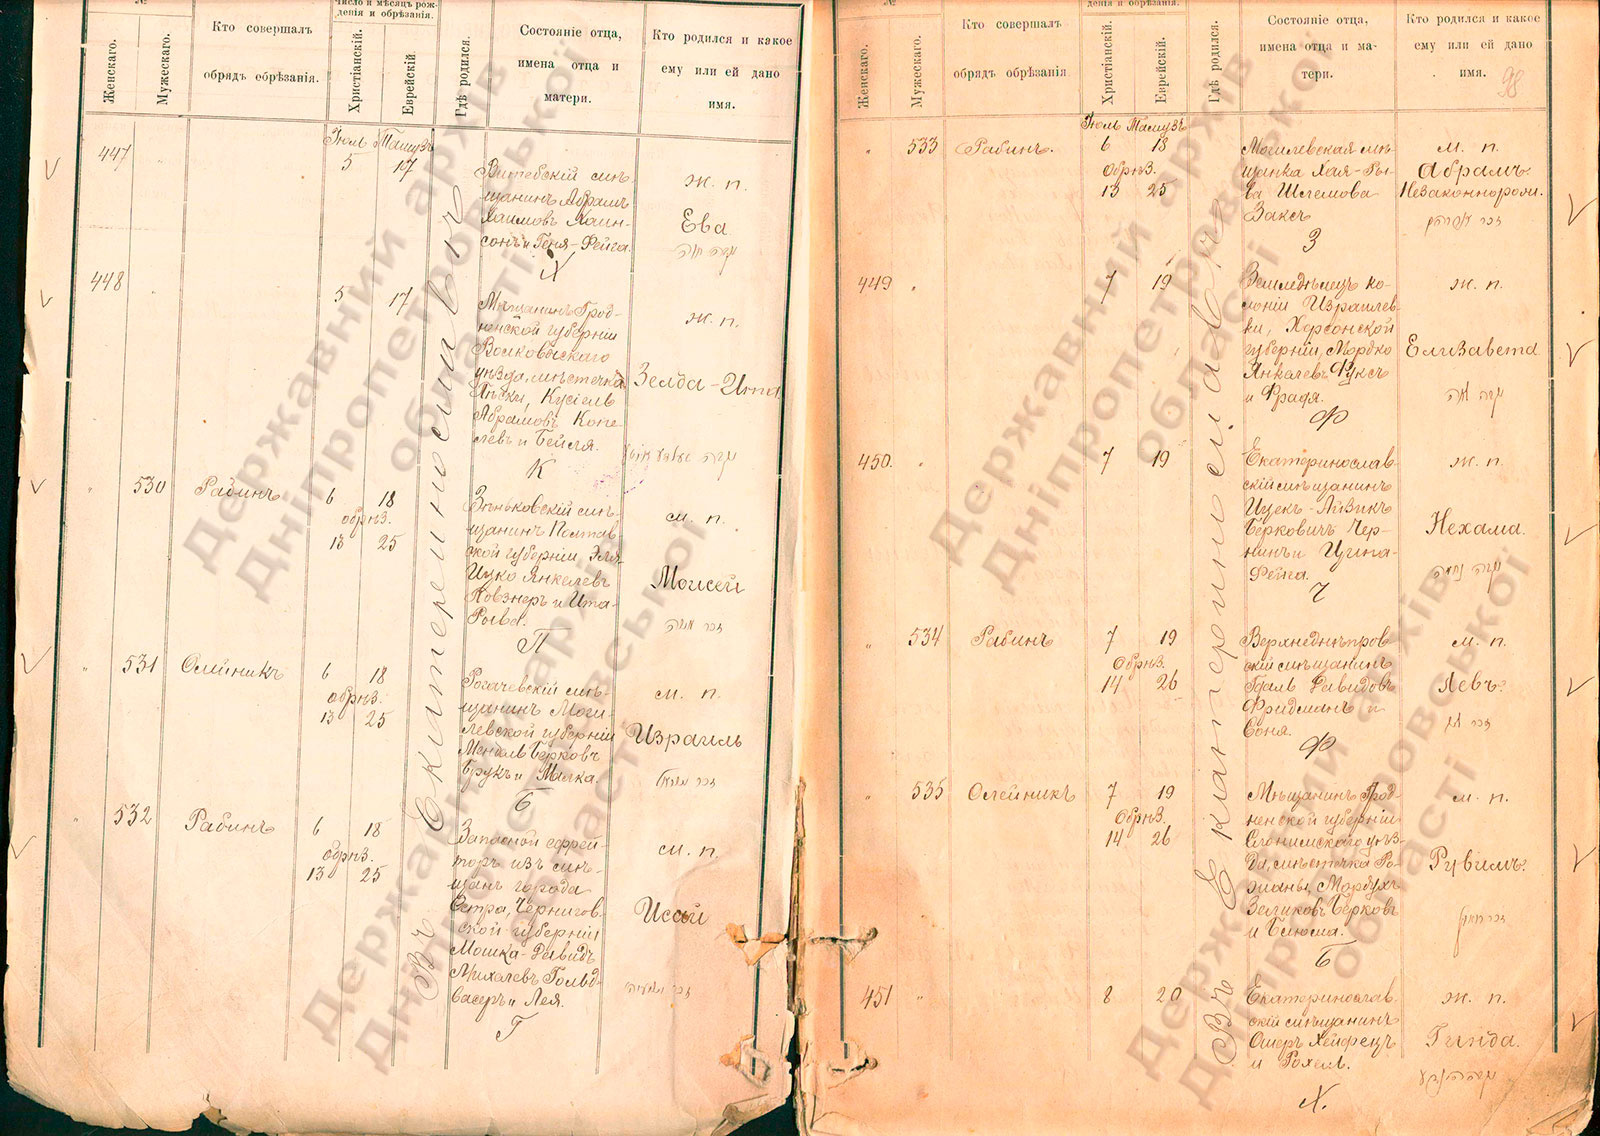 №
Число и мѣсяцъ рож-
денія и обрѣзанія.
Женскаго.
Мужескаго.
Кто совершалъ
обрядъ обрѣзанія.
Христіанскій.
Еврейскій
Гдѣ родился.
Состояніе отца,
имена отца и
матери.
Кто родился и какое
ему или ей дано
имя.
Въ Екатеринославѣ
447
Іюль Тамузъ
5 17
Витебскій мѣ-
щанинъ Абрамъ
Хаимовъ Хаин-
сонъ и Геня-Фейга.
Х
ж. п.
Ева
448
5 17
Мѣщанинъ Грод-
ненской губерніи
Волковыскаго
уѣзда, мѣстечка
Пѣски, Кусіель
Абрамовъ Копе-
левъ и Бейля.
К
ж. п.
Зелда-Ита
" 530 Рабинъ
6 18
обрѣз.
13 25
Зѣньковскій мѣ-
щанинъ Полтав
ской губерніи, Эля-
Ицко Янкелевъ
Повзнеръ и Ита-
Ройва.
П
м. п.
Моисей
" 531 Олейникъ
6 18
обрѣз.
13 25
Рогачевскій мѣ-
щанинъ Моги-
левской губерніи
Мендель Берковъ
Брукъ и Малка.
Б
м. п.
Израиль
" 532 Рабинъ
6 18
обрѣз.
13 25
Запасной ефрей-
торъ изъ мѣ-
щанъ города
Остра, Чернигов-
ской губерніи
Мошка-Давидъ
Михелевъ Гольд-
васеръ и Лея.
Г
м. п.
Исай
денія и обрѣзанія.
Женскаго.
Мужескаго.
Кто совершалъ
обрядъ обрѣзанія
Христіанскій.
Еврейскій.
Гдѣ родился.
Состояніе отца,
имена отца и ма-
тери.
Кто родился и какое
ему или ей дано
имя.
98
Въ Екатеринославѣ
" 533 Рабинъ.
Іюль Тамузъ
6 18
обрѣз.
13 25
Могилевская мѣ-
щанка Хая-Ры-
ва Шлемова
Заксъ
З
м. п.
Абрамъ
Незаконнорожд.
449 "
7 19
Земледѣлецъ ко-
лоніи Израилев-
ки, Херсонской
губерніи, Мордко
Янкелевъ Фуксъ
и Фрадя.
Ф
ж. п.
Елизавета
450. "
7 19
Екатеринослав-
скій мѣщанинъ
Ицек-Айзикъ
Берковичъ Чер-
нинъ и Ципа-
Фейга.
Ч
ж. п.
Нехама.
" 534 Рабинъ
7 19
Обрѣз.
14 26
Верхнеднѣпров-
скій мѣщанинъ
Гдаль Давидовъ
Фридманъ и
Соня.
Ф
м. п.
Левъ.
" 535 Олейникъ
7 19
Обрѣз.
14 26
Мѣщанинъ Грод-
ненской губерніи
Слонимскаго уѣз-
да, мѣстечка Ро-
жаны, Мордухъ
Зеликовъ Берковъ
и Блюма.
Б
м. п.
Рувимъ.
451 "
8 20
Екатеринослав-
скій мѣщанинъ
Ошеръ Хейфецъ
и Рохель.
Х.
ж. п.
Гинда.
Державний архів
Дніпропетровської
області
Державний архів
Дніпропетровської
області
Державний архів
Дніпропетровської
області
Державний архів
Дніпропетровської
області